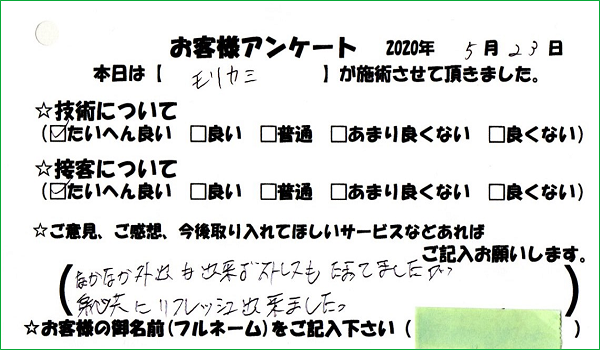 お客様アンケート 2020年 5月23日
本日は【 モリカミ 】が施術させて頂きました。
☆技術について
(☑たいへん良い □良い □普通 □あまり良くない □良くない)
☆接客について
(☑たいへん良い □良い □普通 □あまり良くない □良くない)
☆ご意見、ご感想、今後取り入れてほしいサービスなどあれば
ご記入お願いします。
(なかなか外出も出来ずストレスもたまてましたが
にリフレッシュ出来ました。)
☆お客様の御名前(フルネーム)をご記入下さい( )